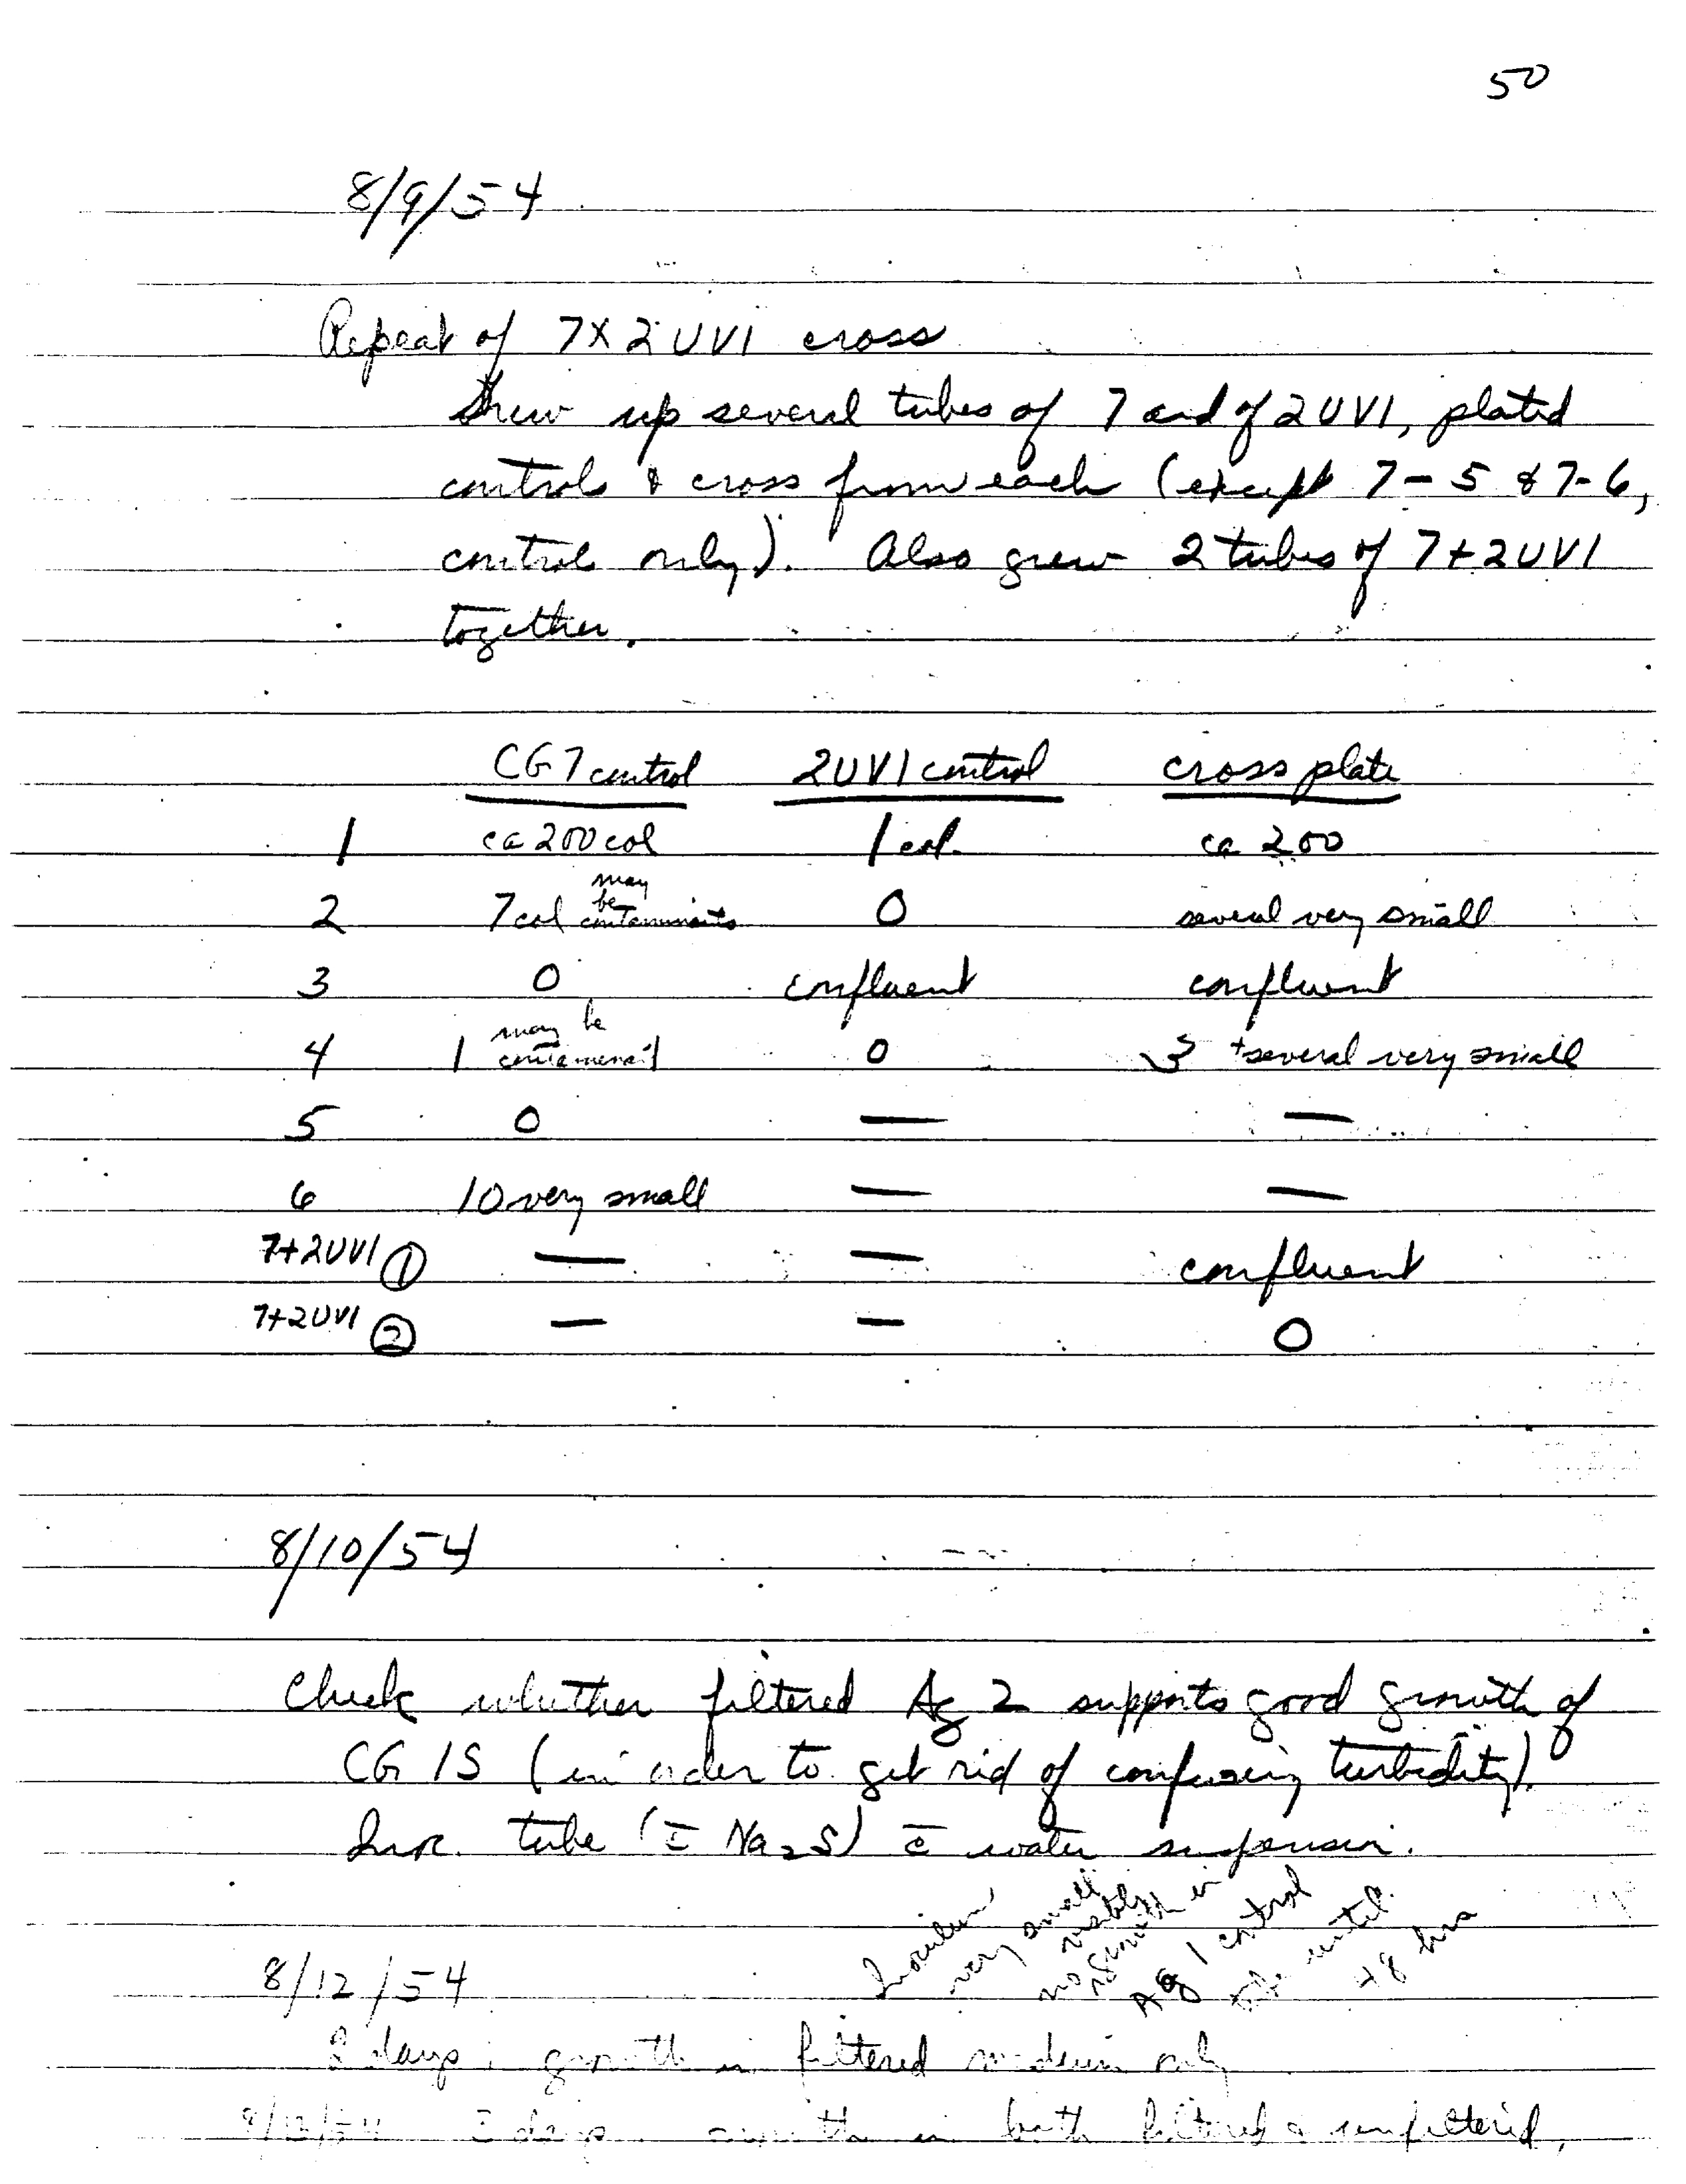 50
8/9/54
Repeat of 7X2UV1 cross
Grew up several tubes of 7 and of 2UV1, plated
controls & cross from each (except 7-5 & 7-6,
controls only). Also grew 2 tubes of 7+2UV1
together.
CG7 control 2UV1 control cross plate
1 ca 200 col 1 col. ca 200
2 7 col may be contaminants 0 several very small
3 0 confluent confluent
4 1 may be contaminant 0 3 + several very small
5 0 — —
6 10 very small — —
7+2UV1 ① — — confluent
7+2UV1 ② — — 0
8/10/54
Check whether filtered Ag 2 supports good growth of
CG 1S (in order to get rid of confusing turbidity).
Inoc. tube (c̄ Na2S) c̄ water suspension.
Inoculum
very small
no visible growth in
Ag 1 control
until
48 hrs
8/12/54
2 days: growth in filtered medium only
8/13/54 3 days growth in both filtered & unfiltered,